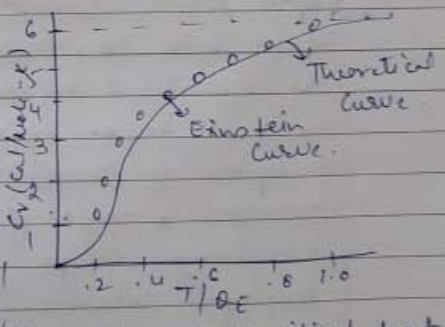 6
5
4
3
2
1
Cv (Cal/mole-K)
Theoretical
Curve.
Exinstein
Curve.
.2 .4 .6 .8 1.0
T/θE